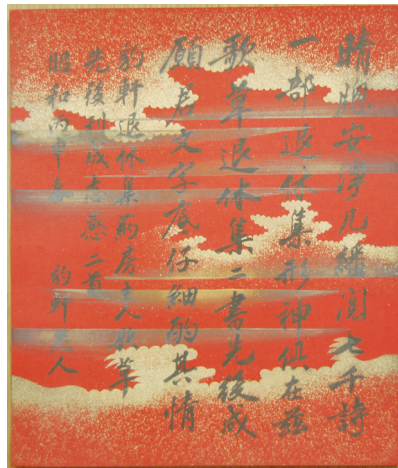 晴牕安淨几繙閲七千詩
一部退休集形神俱在茲
歌草退休集二書先後成
願君文字底仔細酌其情
豹軒退休集葯房主人歌草
先後刊成志感二首
昭和丙申春 豹軒老人